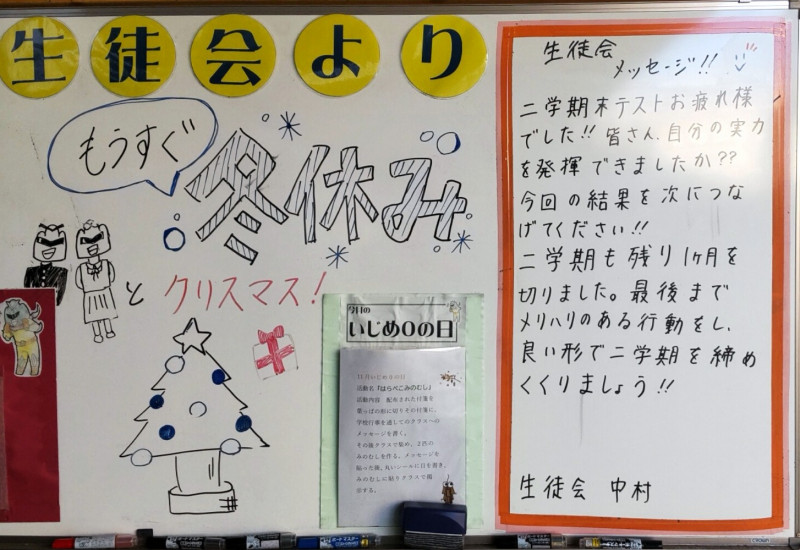 生徒会より
もうすぐ
冬休み
と クリスマス!
今月の
いじめ0の日
11月いじめ0の日
活動名「はらぺこみのむし」
活動内容 配布された付箋を
葉っぱの形に切りその付箋に、
学校行事を通してのクラスへの
メッセージを書く。
その後クラスで集め、2匹の
みのむしを作る。メッセージを
貼った後、丸いシールに目を書き、
みのむしに貼りクラスで掲
示する。
生徒会
メッセージ!!
二学期末テストお疲れ様
でした!! 皆さん、自分の実力
を発揮できましたか??
今回の結果を次につな
げてください!!
二学期も残り1ヶ月を
切りました。最後まで
メリハリのある行動をし、
良い形で二学期を締め
くくりましょう!!
生徒会 中村